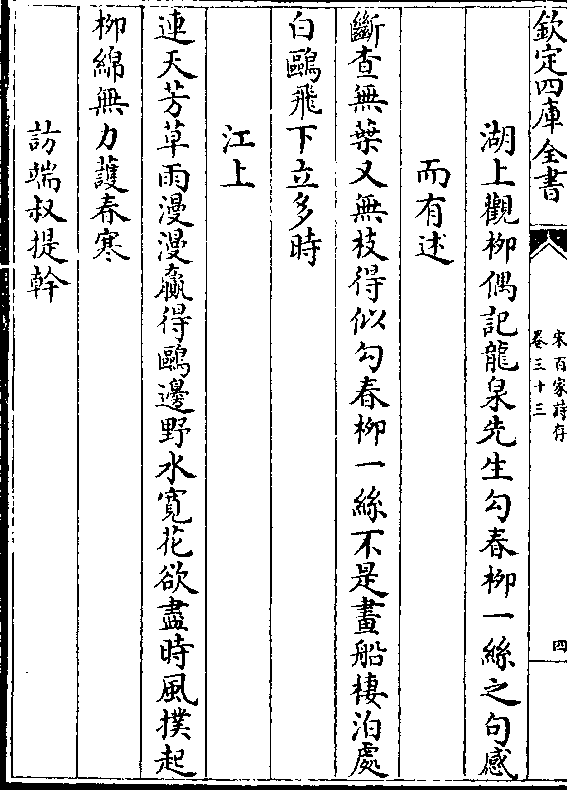 欽定四庫全書
宋百家詩存
卷三十三
四
湖上觀栁偶記龍泉先生勾春栁一絲之句感
而有述
斷查無葉又無枝得似勾春栁一絲不是畫船棲泊處
白鷗飛下立多時
江上
連天芳草雨漫漫贏得鷗邊野水寛花欲盡時風撲起
栁綿無力護春寒
訪端叔提幹